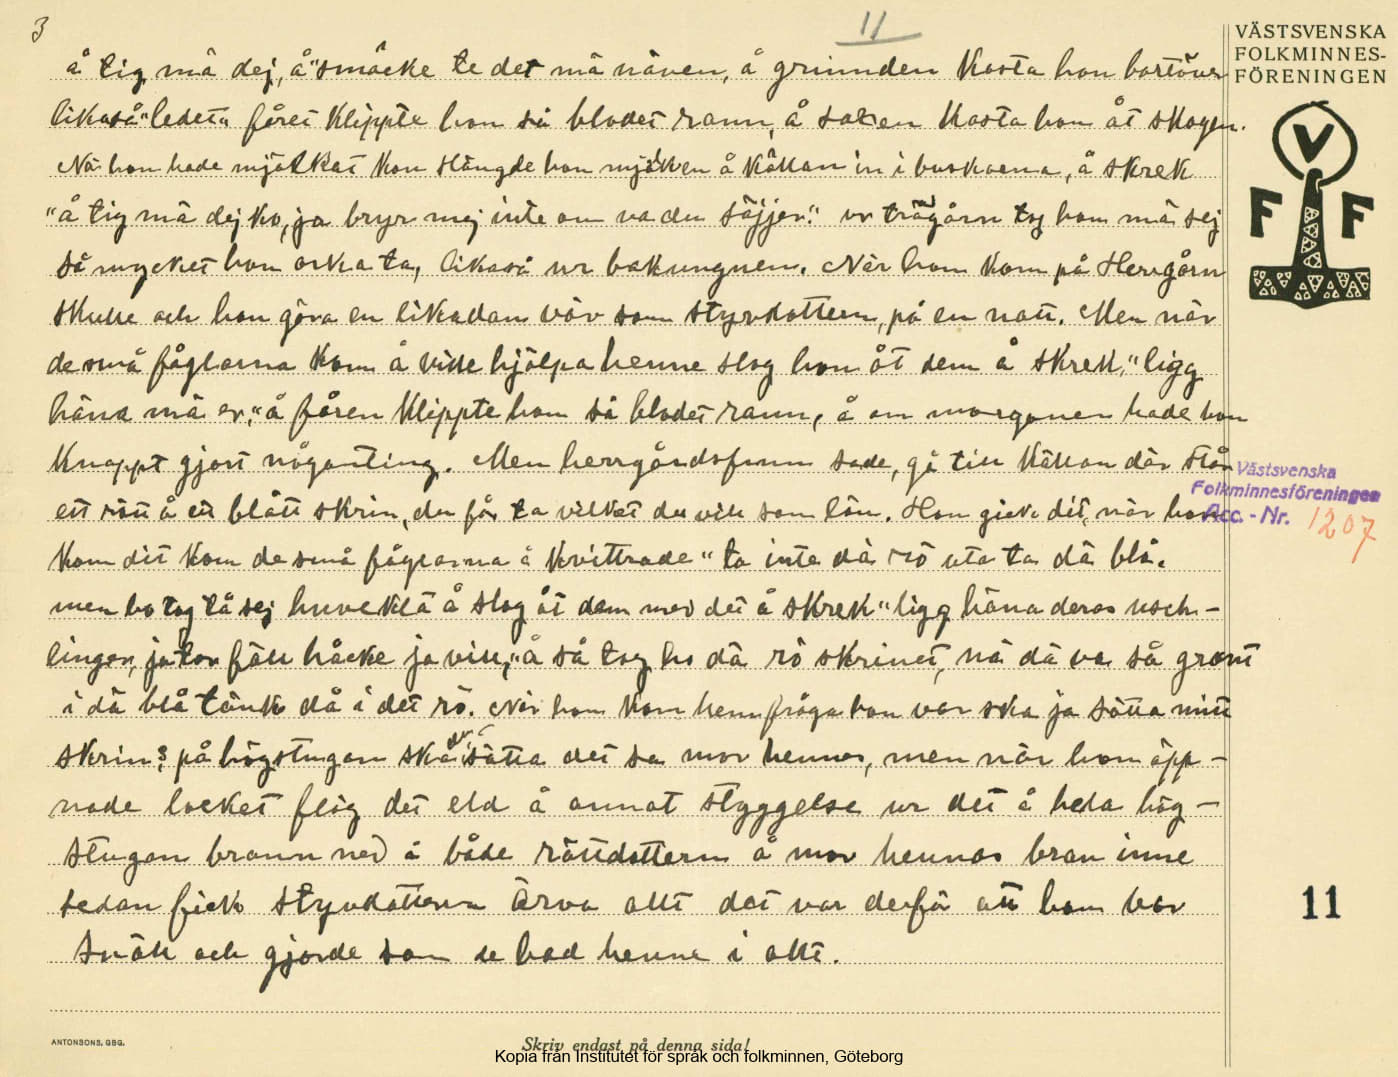 3
11
å tig mä dej, å" smäcke te det mä näven, å grinnden kasta hon bortöver
likaså "ledet" fåret klippte hon så blodet rann, å saxen kasta hon åt skogen.
När hon hade mjölkat kon slängde hon mjölken å kättan in i buskarna, å skrek
"å tig mä dej ko, ja bryr mej inte om va du säjjer." ur trägårn tog hon mä sej
så mycket hon orka ta, likaså ur bakungnen. När hon kom på Herrgårn
skulle och hon göra en likadan väv som styvdottern, på en natt. Men när
de små fåglarna kom å ville hjälpa henne slog hon åt dem å skrek, "ligg
häna mä er," å fåren klippte hon så blodet rann, å om morgonen hade hon
knappt gjort någonting. Men herrgårdsfrun sade, gå till källan där står
ett rött å ett blått skrin, du får ta vilket du vill som lön. Hon gick dit, när hon
kom dit kom de små fåglarna å kvittrade "ta inte dä rö uta ta dä blå.
men ho tog tå sej huveklä å slog åt dem med det å skrek "ligg häna deras usch-
lingar, ja tar fäll håcke ja vill," å så tog ho dä rö skrinet, nä dä va så grant
i dä blå tänk då i det rö. När hon kom hem fråga hon var ska ja sätta mitt
skrin? på högstugan ska du sätta det sa mor hennes, men när hon öpp-
nade locket flög det eld å annat styggelse ur det å hela hög-
stugan brann ned å både rättdottern å mor hennes bran inne
sedan fick styvdottern ärva allt det var derför att hon var
snäll och gjorde som de bad henne i allt.
VÄSTSVENSKA
FOLKMINNES-
FÖRENINGEN
V
F F
Västsvenska
Folkminnesföreningen
Acc.-Nr. 1207
11
ANTONSONS, GBG.
Skriv endast på denna sida!
Kopia från Institutet för språk och folkminnen, Göteborg